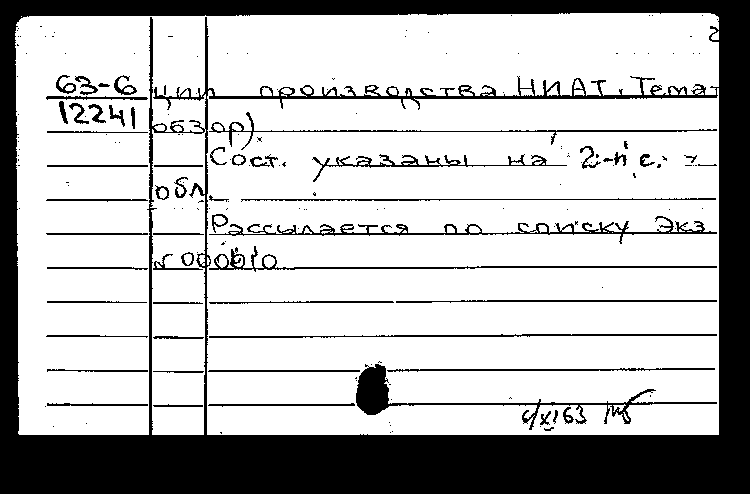 2
63-6 ции производства. НИАТ. Темат
12241 обзор).
Сост. указаны на 2-й с.
обл.
Рассылается по списку Экз
№ 000610
/XI 63